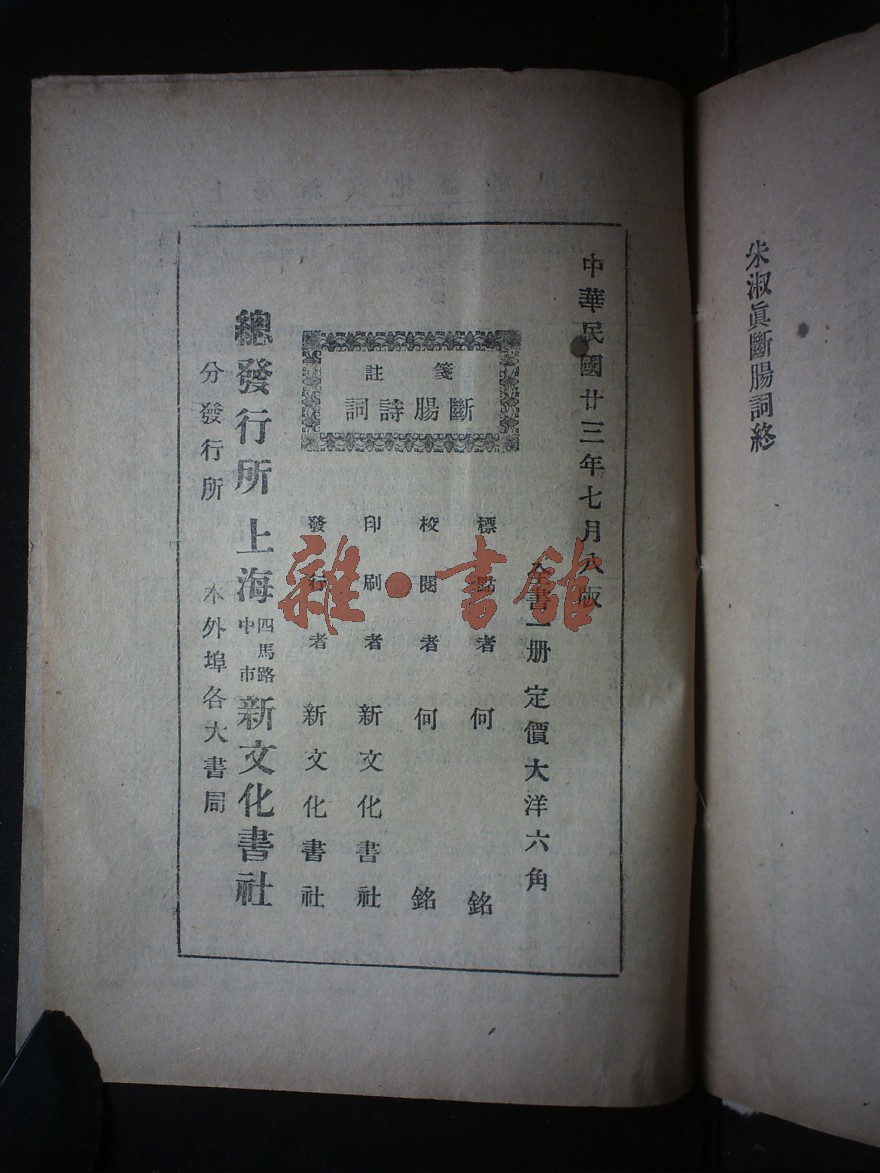 朱淑眞斷腸詞終
中華民國廿三年七月八版
全書一册 定價大洋六角
箋註
斷腸詩詞
標點者 何銘
校閱者 何銘
印刷者 新文化書社
發行者 新文化書社
總發行所 上海 四馬路中市 新文化書社
分發行所 本外埠各大書局
雜·書館